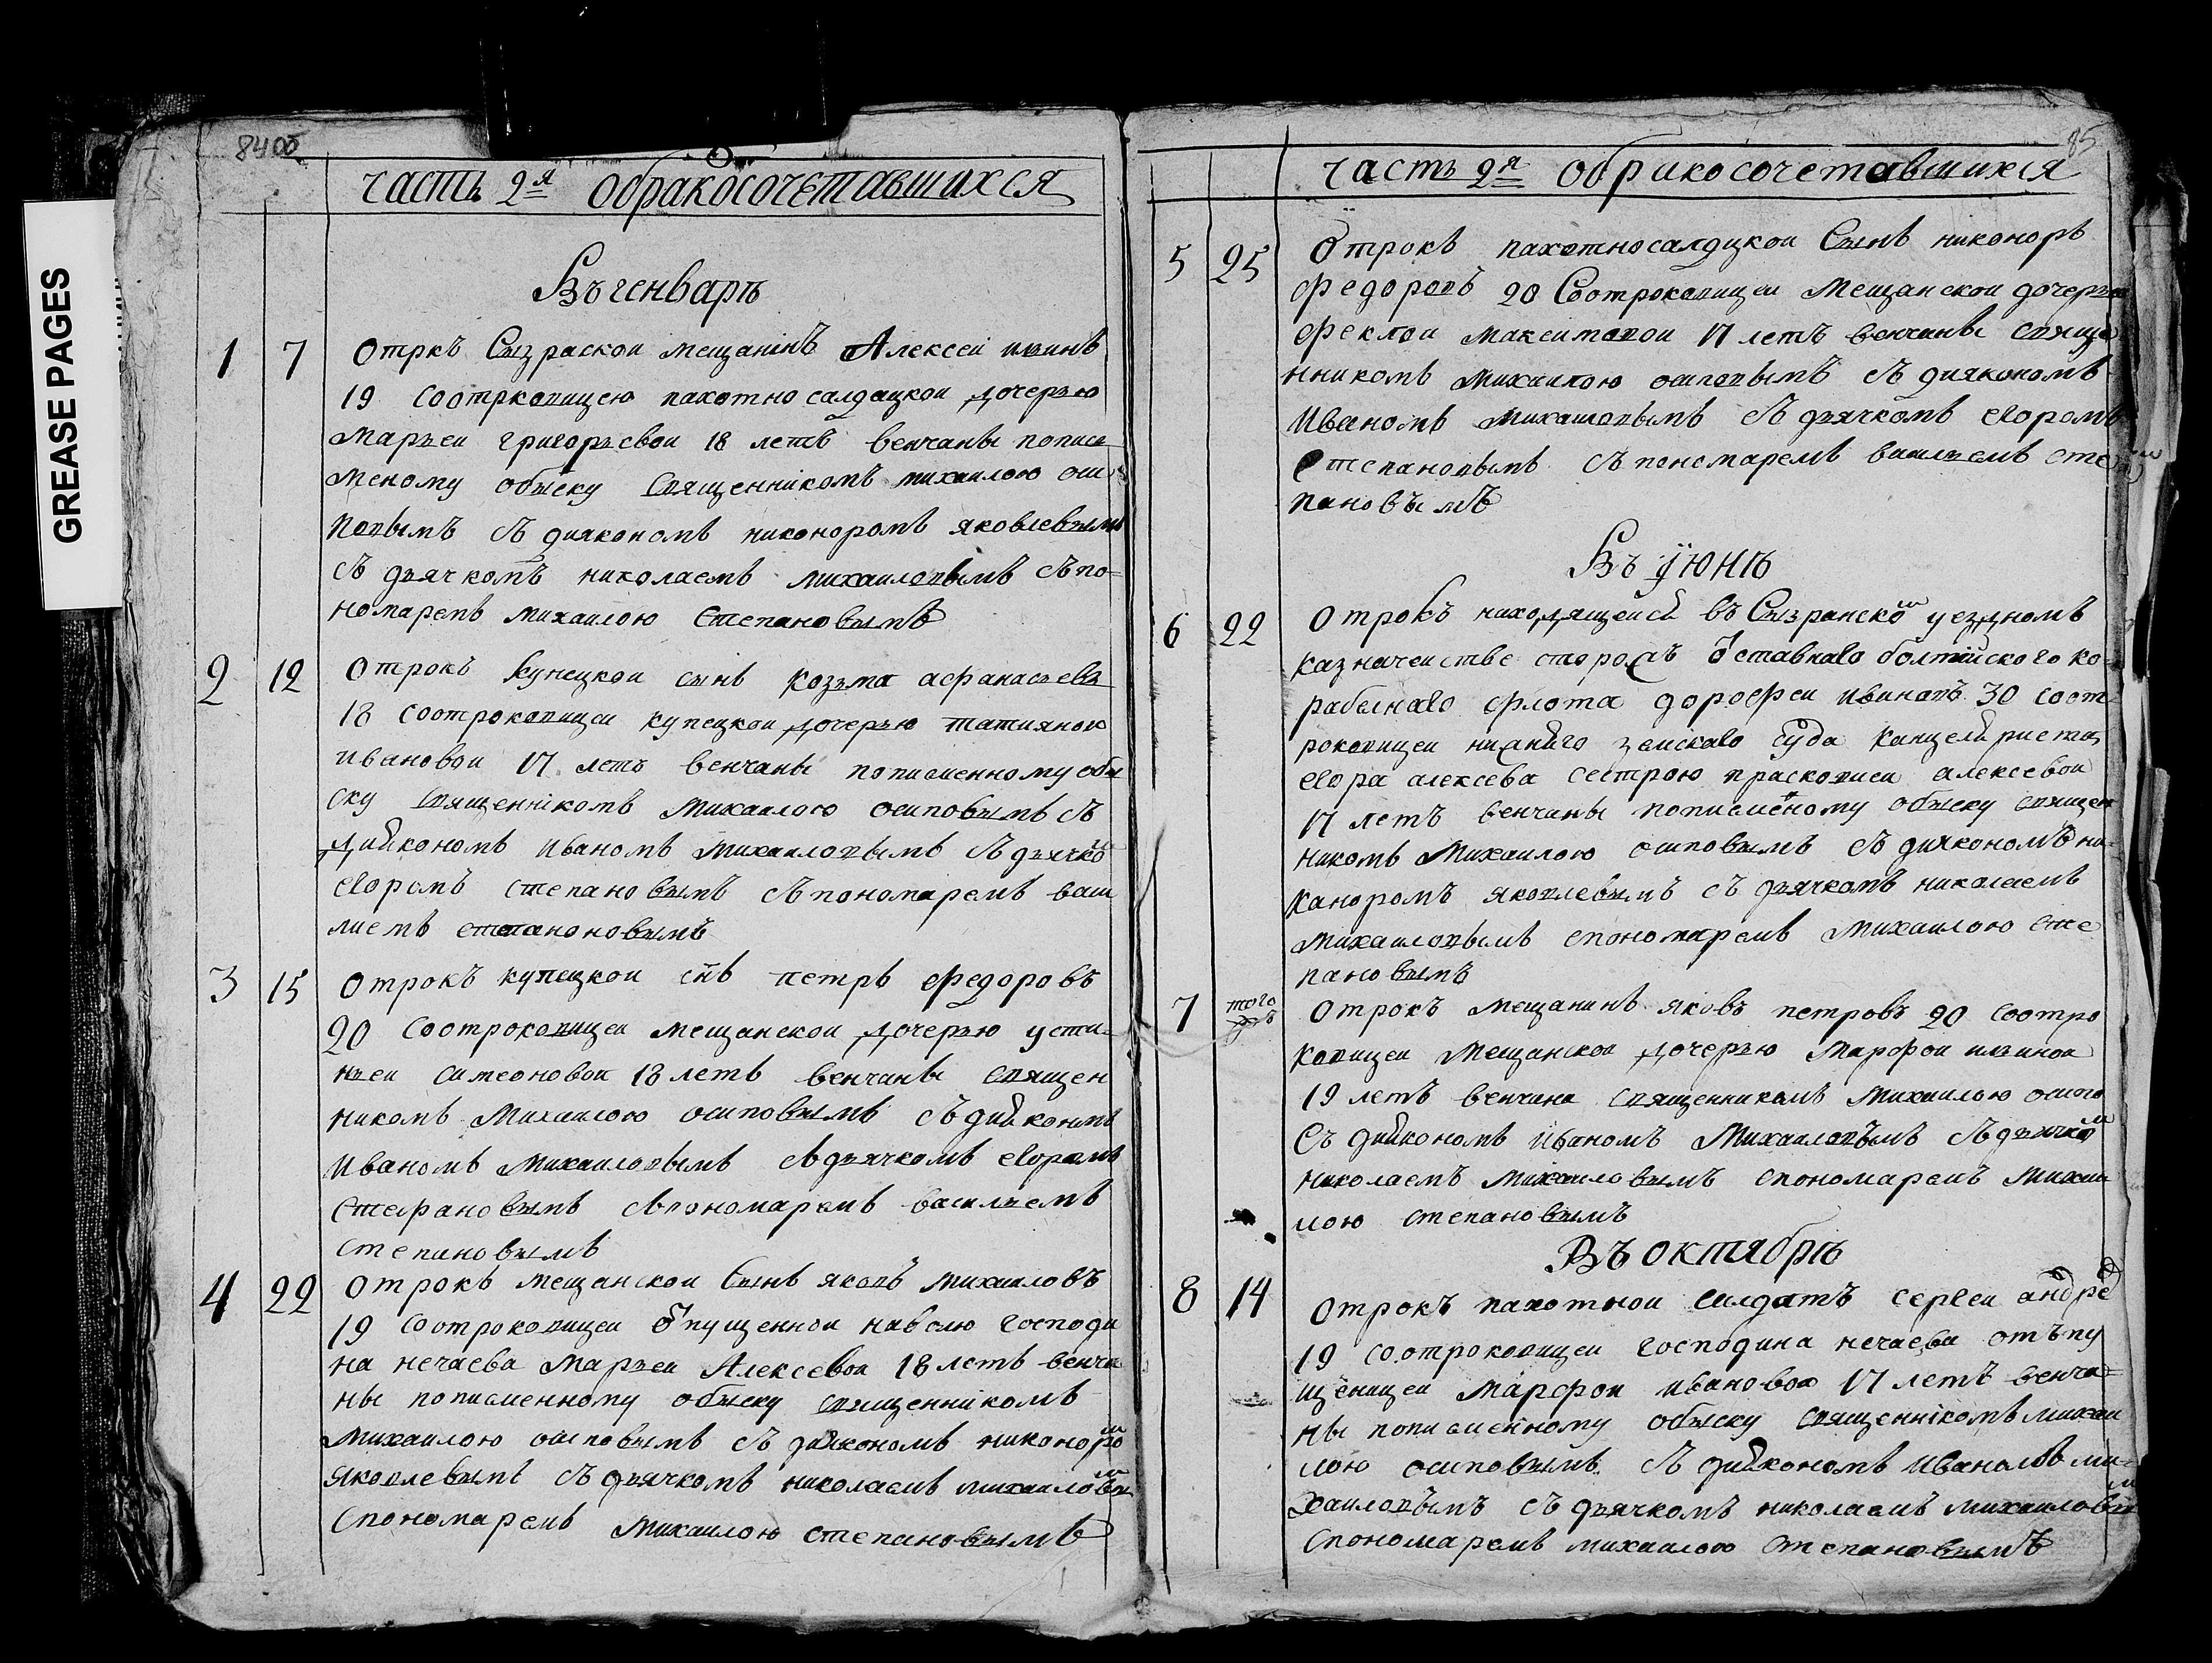 GREASE PAGES
8400
часть 2я обракосочетавшихся
Въ генварѣ
1 7 Отркъ Сызраской мещанинъ Алексеи ивинъ
19 соотрковицею пахотно салдацкой дочерью
марьеи григорьевои 18 летъ венчаны по писм
меному обыску священникомъ михаилою оси
повымъ съ диякономъ никоноромъ яковлевымъ
съ дьячкомъ николаемъ михаиловымъ съ по-
номаремъ михаилою Степановымъ
2 12 Отрокъ купецкои сынъ козьма афанасьевъ
18 соотроковицеи купецкои дочерью татияною
ивановои 17 летъ венчаны по писменному обы
ску священникомъ Михаилою осиповымъ съ
диякономъ иваномъ михаиловымъ съ дьячком
егоромъ степановымъ съ пономаремъ васи
лиемъ степаноновымъ
3 15 Отрокъ купецкои снъ петръ федоровъ
20 соотроковицеи мещанскои дочерью усти-
ньеи симеоновои 18 летъ венчаны священ
никомъ Михаилою осиповымъ съ дияконмъ
иваномъ михаиловымъ съ дьячкомъ егоромъ
Стефановымъ съ пономаремъ васильемъ
степановымъ
4 22 Отрокъ мещанскои Сынъ яковъ михаиловъ
19 соотроковицеи отпущеннои наволю господи
на нечаева марьеи Алексевои 18 летъ венча
ны по писменному обыску священникомъ
михаилою осиповымъ съ диякономъ никоноро
яковлевымъ съ дьячкомъ николаемъ михаиловы
спономаремъ михаилою степановымъ
85
часть 2я обракосочетавшихся
5 25 Отрокъ пахотносалдцкои Сынъ никоноръ
федоровъ 20 Соотроковицеи мещанскои дочерью
феклои максимовои 17 летъ венчаны свяще
нникомъ михаилою осиповымъ съ диякономъ
иваномъ михаиловымъ съ дьячкомъ егоромъ
Степановымъ съ пономаремъ васильемъ сте
пановымъ
Въ июнѣ
6 22 Отрокъ находящейся въ Сызранском уездномъ
казначеистве сторожъ отставнаго болтийского ко-
рабелнаго флота дорофеи ивановъ 30 соот-
роковицеи нижняго земскаго суда канцеляриста
егора алексева сестрою прасковиеи алексевои
17 летъ венчаны по писменому обыску священ
никомъ Михаилою осиповымъ съ диякономъ ни-
каноромъ яковлевымъ съ дьячкомъ николаемъ
михаиловымъ спономаремъ михаилою сте
пановымъ
7 того Отрокъ мещанинъ яковъ петровъ 20 соотро
ковицеи мещанскои дочерью марфои ильинои
19 летъ венчана священникомъ михаилою осипо
Съ диякономъ иваномъ Михаиловымъ съ дьячком
николаемъ михаиловымъ спономаремъ михаи
лою степановымъ
Въ октябрѣ
8 14 Отрокъ пахотнои салдатъ сергеи андре
19 соотроковицеи господина нечаева отъпу
щеницеи марфои ивановои 17 летъ венча-
ны по писменному обыску священникомъ михаи
лою осиповымъ съ диякономъ иваномъ ми-
хаиловымъ съ дьячкомъ николаемъ михаиловы
спономаремъ михаилою степановымъ